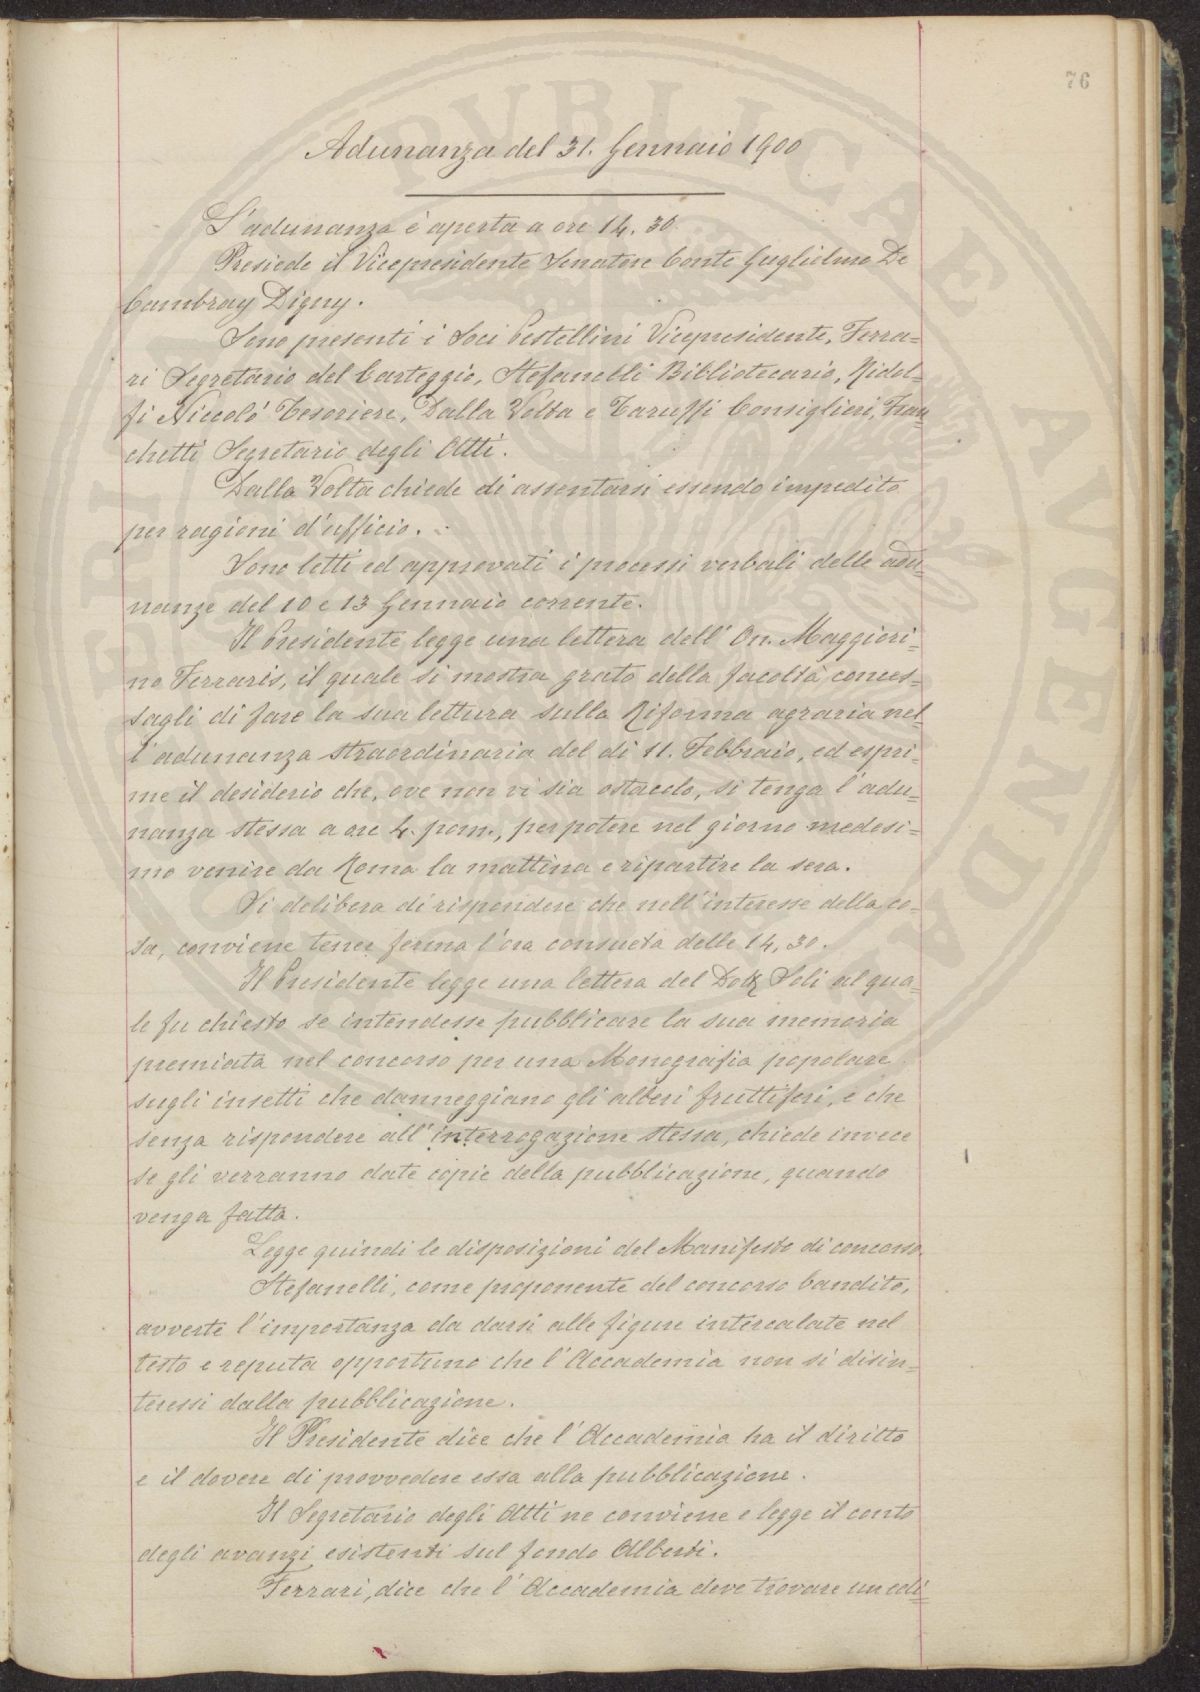 76
Adunanza del 31. Gennaio 1900
L'adunanza è aperta a ore 14.30.
Presiede il Vicepresidente Senatore Conte Guglielmo De
Cambray Digny.
Sono presenti i Soci Pestellini Vicepresidente, Ferra=
ri Segretario del Carteggio, Stefanelli Bibliotecario, Ridol=
fi Niccolò Tesoriere, Dalla Volta e Taruffi Consiglieri, Fran
chetti Segretario degli Atti.
Dalla Volta chiede di assentarsi essendo impedito
per ragioni d'ufficio.
Sono letti ed approvati i processi verbali delle adu=
nanze del 10 e 13 Gennaio corrente.
Il Presidente legge una lettera dell'On. Maggiori=
no Ferraris, il quale si mostra grato della facoltà conces=
sagli di fare la sua lettura sulla Riforma agraria nel=
l'adunanza straordinaria del dì 11. Febbraio, ed espri=
me il desiderio che, ove non vi sia ostacolo, si tenga l'adu=
nanza stessa a ore 4. pom., per potere nel giorno medesi=
mo venire da Roma la mattina e ripartire la sera.
Si delibera di rispondere che nell'interesse della co=
sa, conviene tener ferma l'ora consueta delle 14,30.
Il Presidente legge una lettera del Dott. Soli al qua=
le fu chiesto se intendesse pubblicare la sua memoria
premiata nel concorso per una Monografia popolare
sugli insetti che danneggiano gli alberi fruttiferi, e che
senza rispondere all'interrogazione stessa, chiede invece
se gli verranno date copie della pubblicazione, quando
venga fatta.
Legge quindi le disposizioni del Manifesto di concorso.
Stefanelli, come proponente del concorso bandito,
avverte l'importanza da darsi alle figure intercalate nel
testo e reputa opportuno che l'Accademia non si disin=
teressi dalla pubblicazione.
Il Presidente dice che l'Accademia ha il diritto
e il dovere di provvedere essa alla pubblicazione.
Il Segretario degli Atti ne conviene e legge il conto
degli avanzi esistenti sul fondo Alberti.
Ferrari, dice che l'Accademia deve trovare un edi=
PUBLICAE AUGENDAE